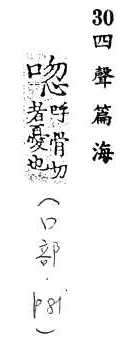 30四聲篇海
唿呼骨切者憂也
(口部.p81)